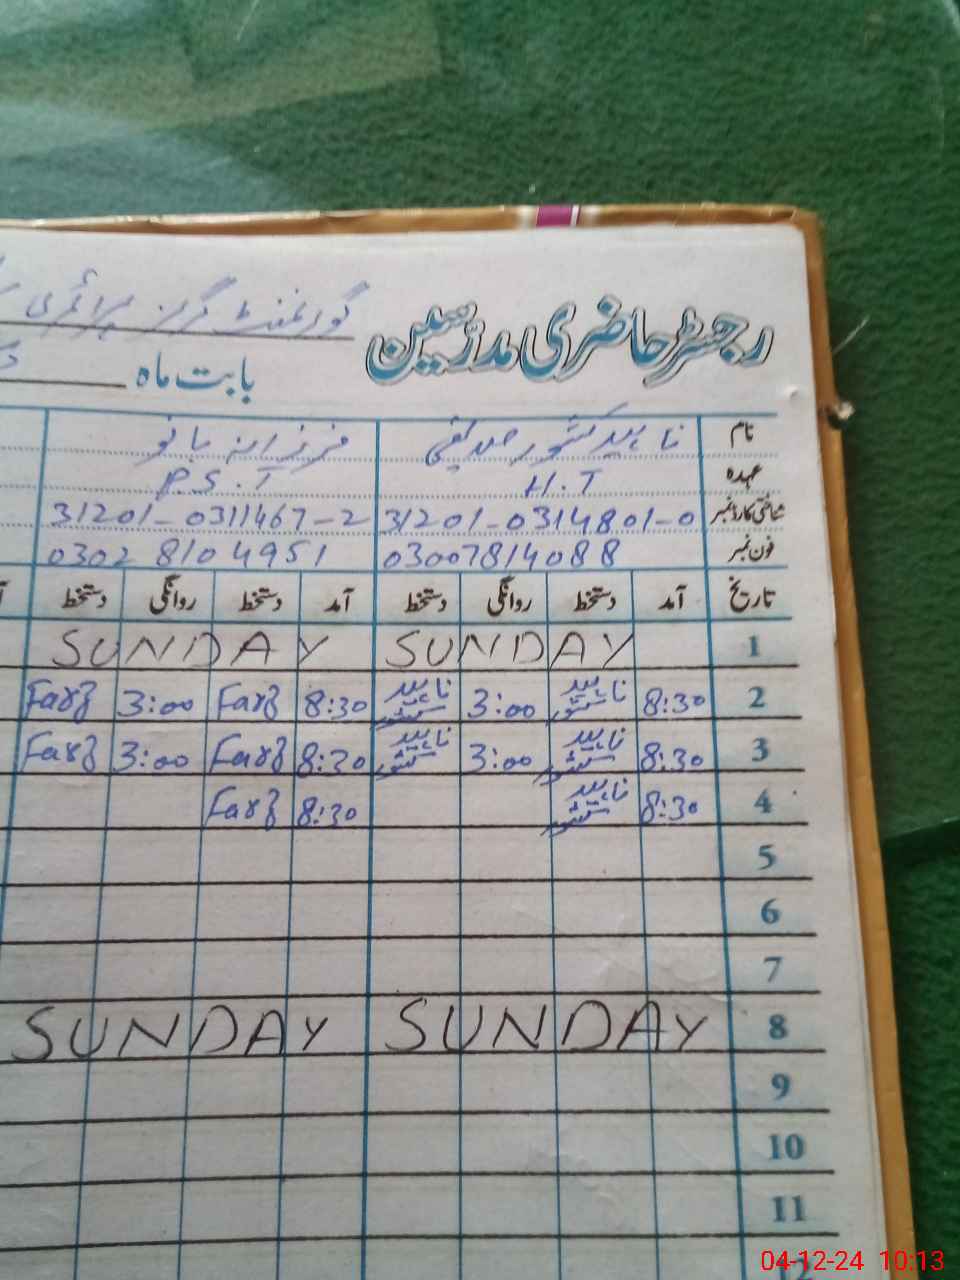 رجسٹر حاضری مدرسین گورنمنٹ گرلز پرائمری
بابت ماہ
نام ناہید کشور صدیقی فرزانہ بانو
عہدہ H.T P.S.T
شناختی کارڈ نمبر 31201-0314801-0 31201-0311467-2
فون نمبر 03007814088 0302 8104951
تاریخ آمد دستخط روانگی دستخط آمد دستخط روانگی دستخط
1 SUNDAY SUNDAY
2 8:30 ناہید کشور 3:00 ناہید کشور 8:30 Farz 3:00 Farz
3 8:30 ناہید کشور 3:00 ناہید کشور 8:30 Farz 3:00 Farz
4 8:30 ناہید کشور 8:30 Farz
5
6
7
8 SUNDAY SUNDAY
9
10
11
04-12-24 10:13